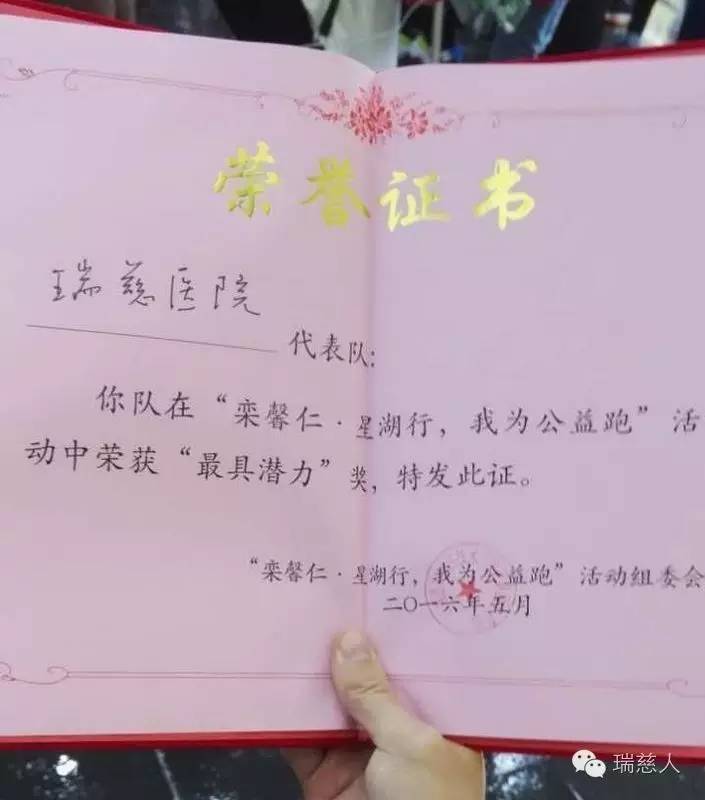 荣誉证书
瑞慈医院
代表队:
你队在“栾馨仁·星湖行，我为公益跑”活
动中荣获“最具潜力”奖，特发此证。
“栾馨仁·星湖行，我为公益跑”活动组委会
二〇一六年五月
瑞慈人